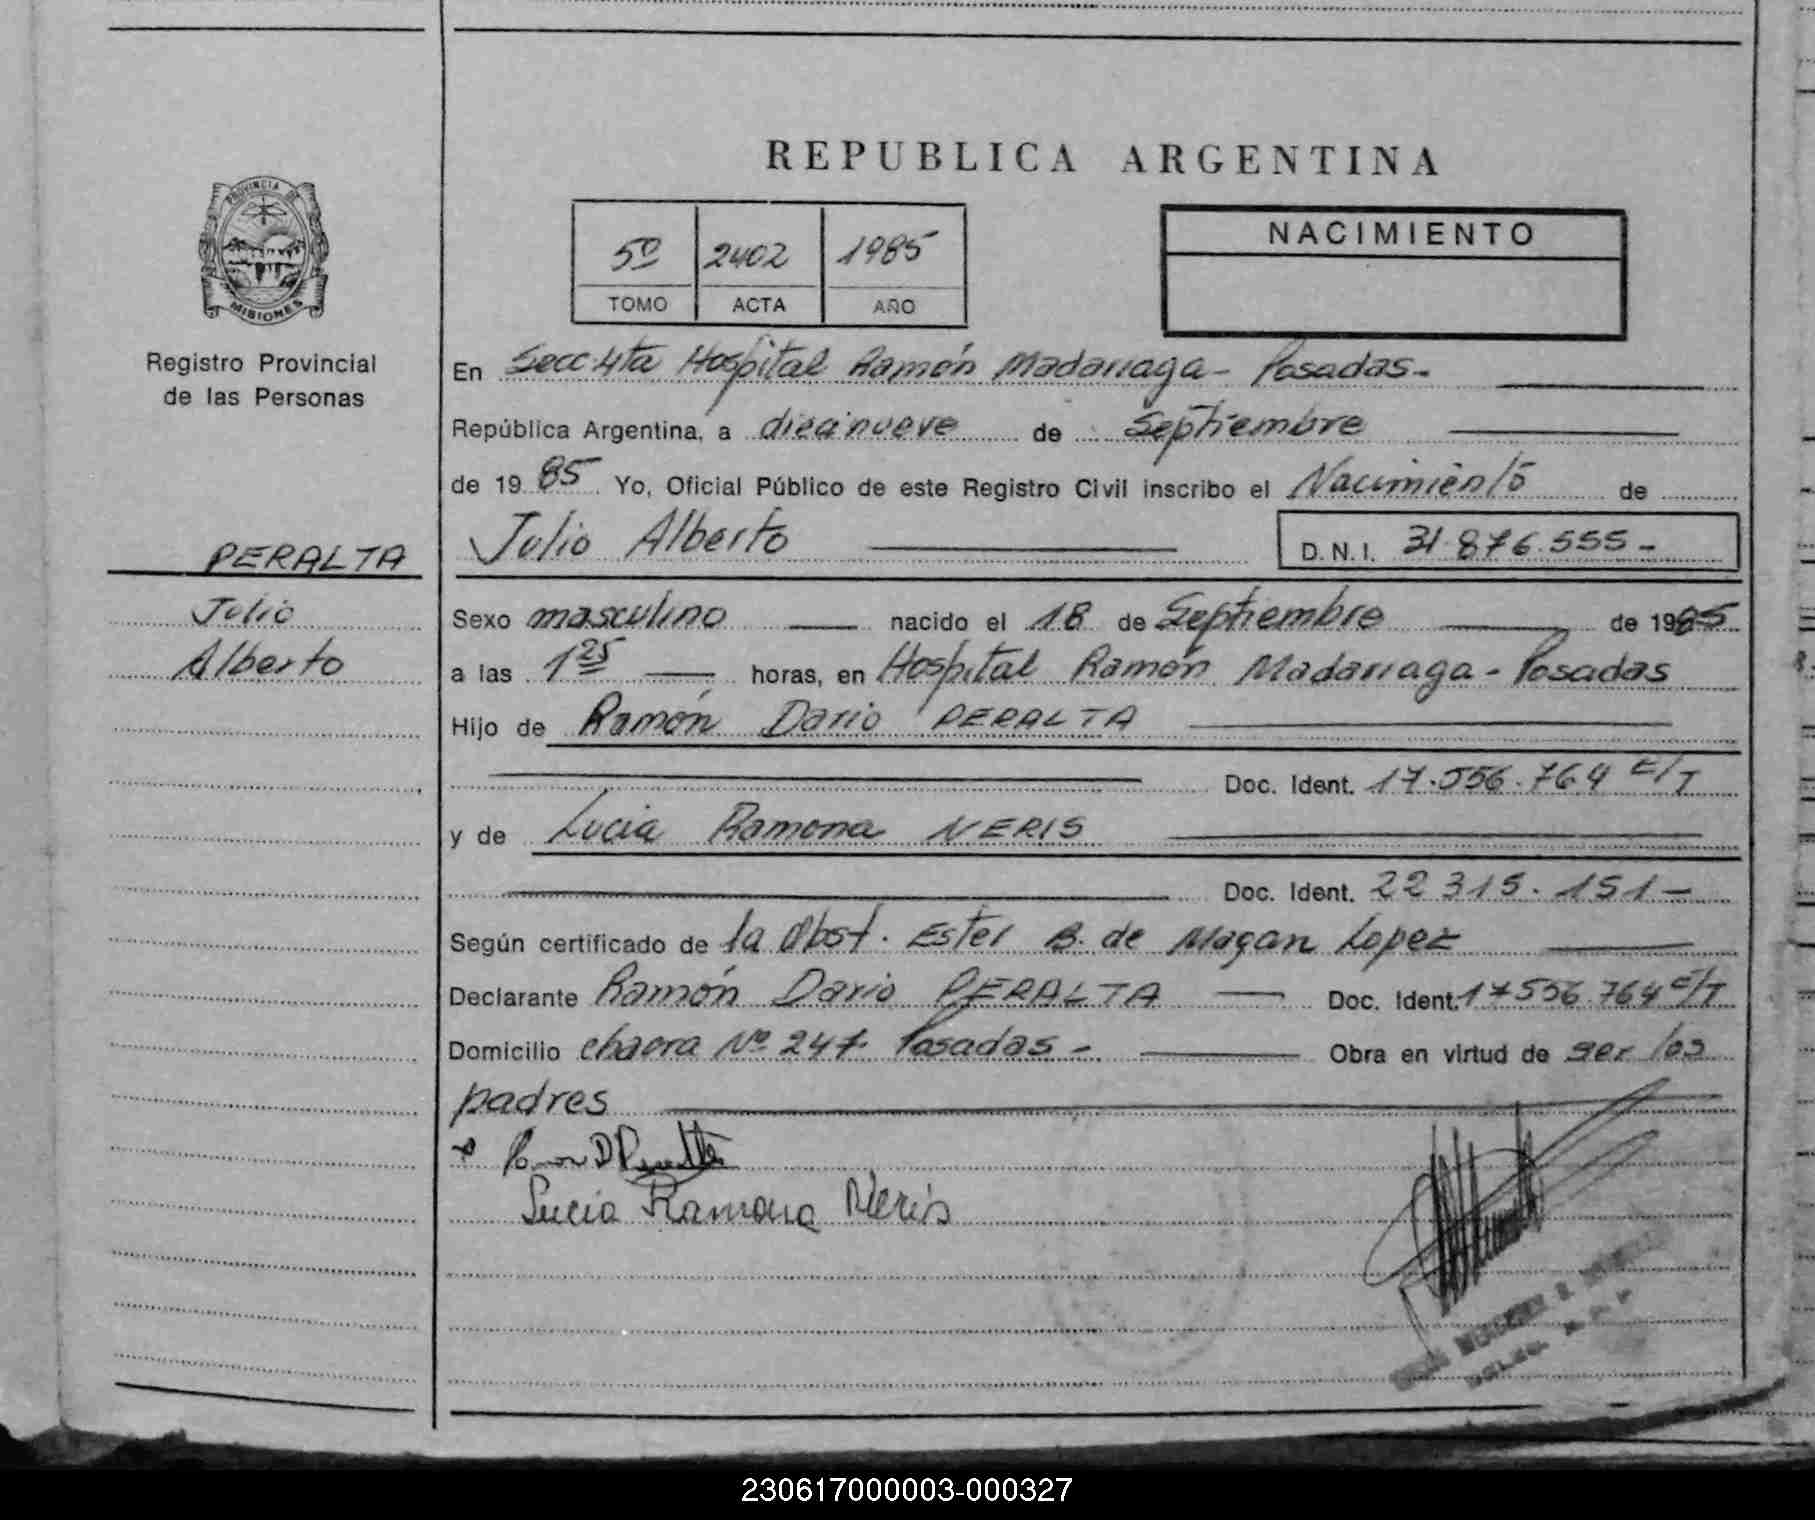 REPUBLICA ARGENTINA
PROVINCIA DE
MISIONES
Registro Provincial
de las Personas
5º 2402 1985
TOMO ACTA AÑO
NACIMIENTO
En Secc. 4ta Hospital Ramón Madariaga - Posadas.-
República Argentina, a diecinueve de Septiembre
de 19 85 Yo, Oficial Público de este Registro Civil inscribo el Nacimiento de
PERALTA
Julio Alberto D.N.I. 31.876.555-
Julio
Alberto
Sexo masculino nacido el 18 de Septiembre de 1985
a las 1 25 horas, en Hospital Ramón Madariaga - Posadas
Hijo de Ramón Dario PERALTA
Doc. Ident. 17.556.764 E/T
y de Lucia Ramona NERIS
Doc. Ident. 22 315.151-
Según certificado de la Obst. Ester B. de Magan Lopez
Declarante Ramón Dario PERALTA Doc. Ident. 17556.764 E/T
Domicilio chacra Nº 247 Posadas - Obra en virtud de ser los
padres
Ramon D Peralta
Lucia Ramona Neris
230617000003-000327